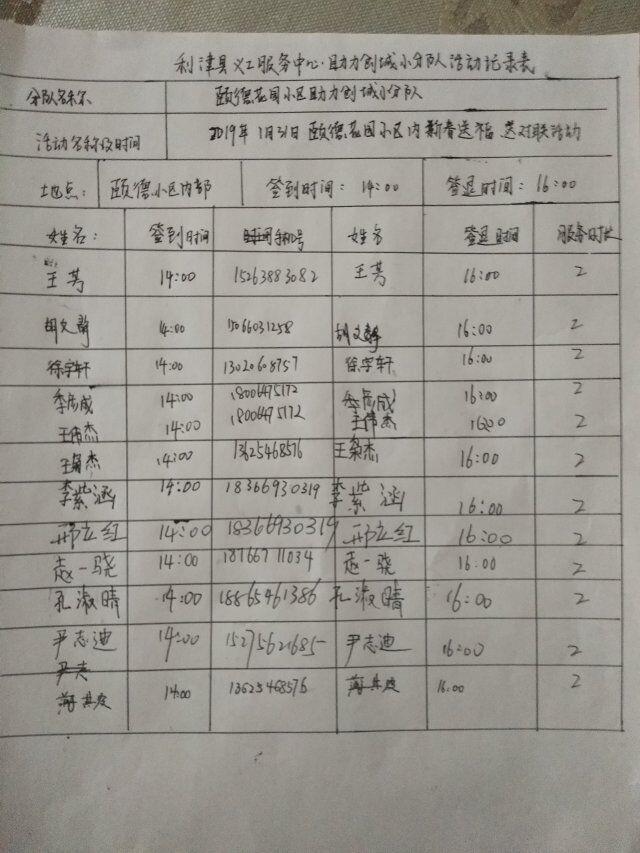 利津县义工服务中心·助力创城小分队活动记录表
分队名称 颐德花园小区助力创城小分队
活动名称及时间 2019年1月31日颐德花园小区内新春送福 送对联活动
地点: 颐德小区内部 签到时间: 14:00 签退时间: 16:00
姓名: 签到时间 手机号 姓名 签退时间 服务时长
王芳 14:00 15263883082 王芳 16:00 2
胡文静 14:00 15066031258 胡文静 16:00 2
徐宇轩 14:00 13020608757 徐宇轩 16:00 2
李彦成 14:00 18006475172 李彦成 16:00 2
王伟杰 14:00 18006475172 王伟杰 16:00 2
王杰 14:00 13625468576 王杰 16:00 2
李紫涵 14:00 18366930319 李紫涵 16:00 2
邢立红 14:00 18366930319 邢立红 16:00 2
赵一骁 14:00 18766711034 赵一骁 16:00 2
孔淑晴 14:00 18865461386 孔淑晴 16:00 2
尹志迪 14:00 15275621685 尹志迪 16:00 2
尹志
14:00 13625468576 16:00 2